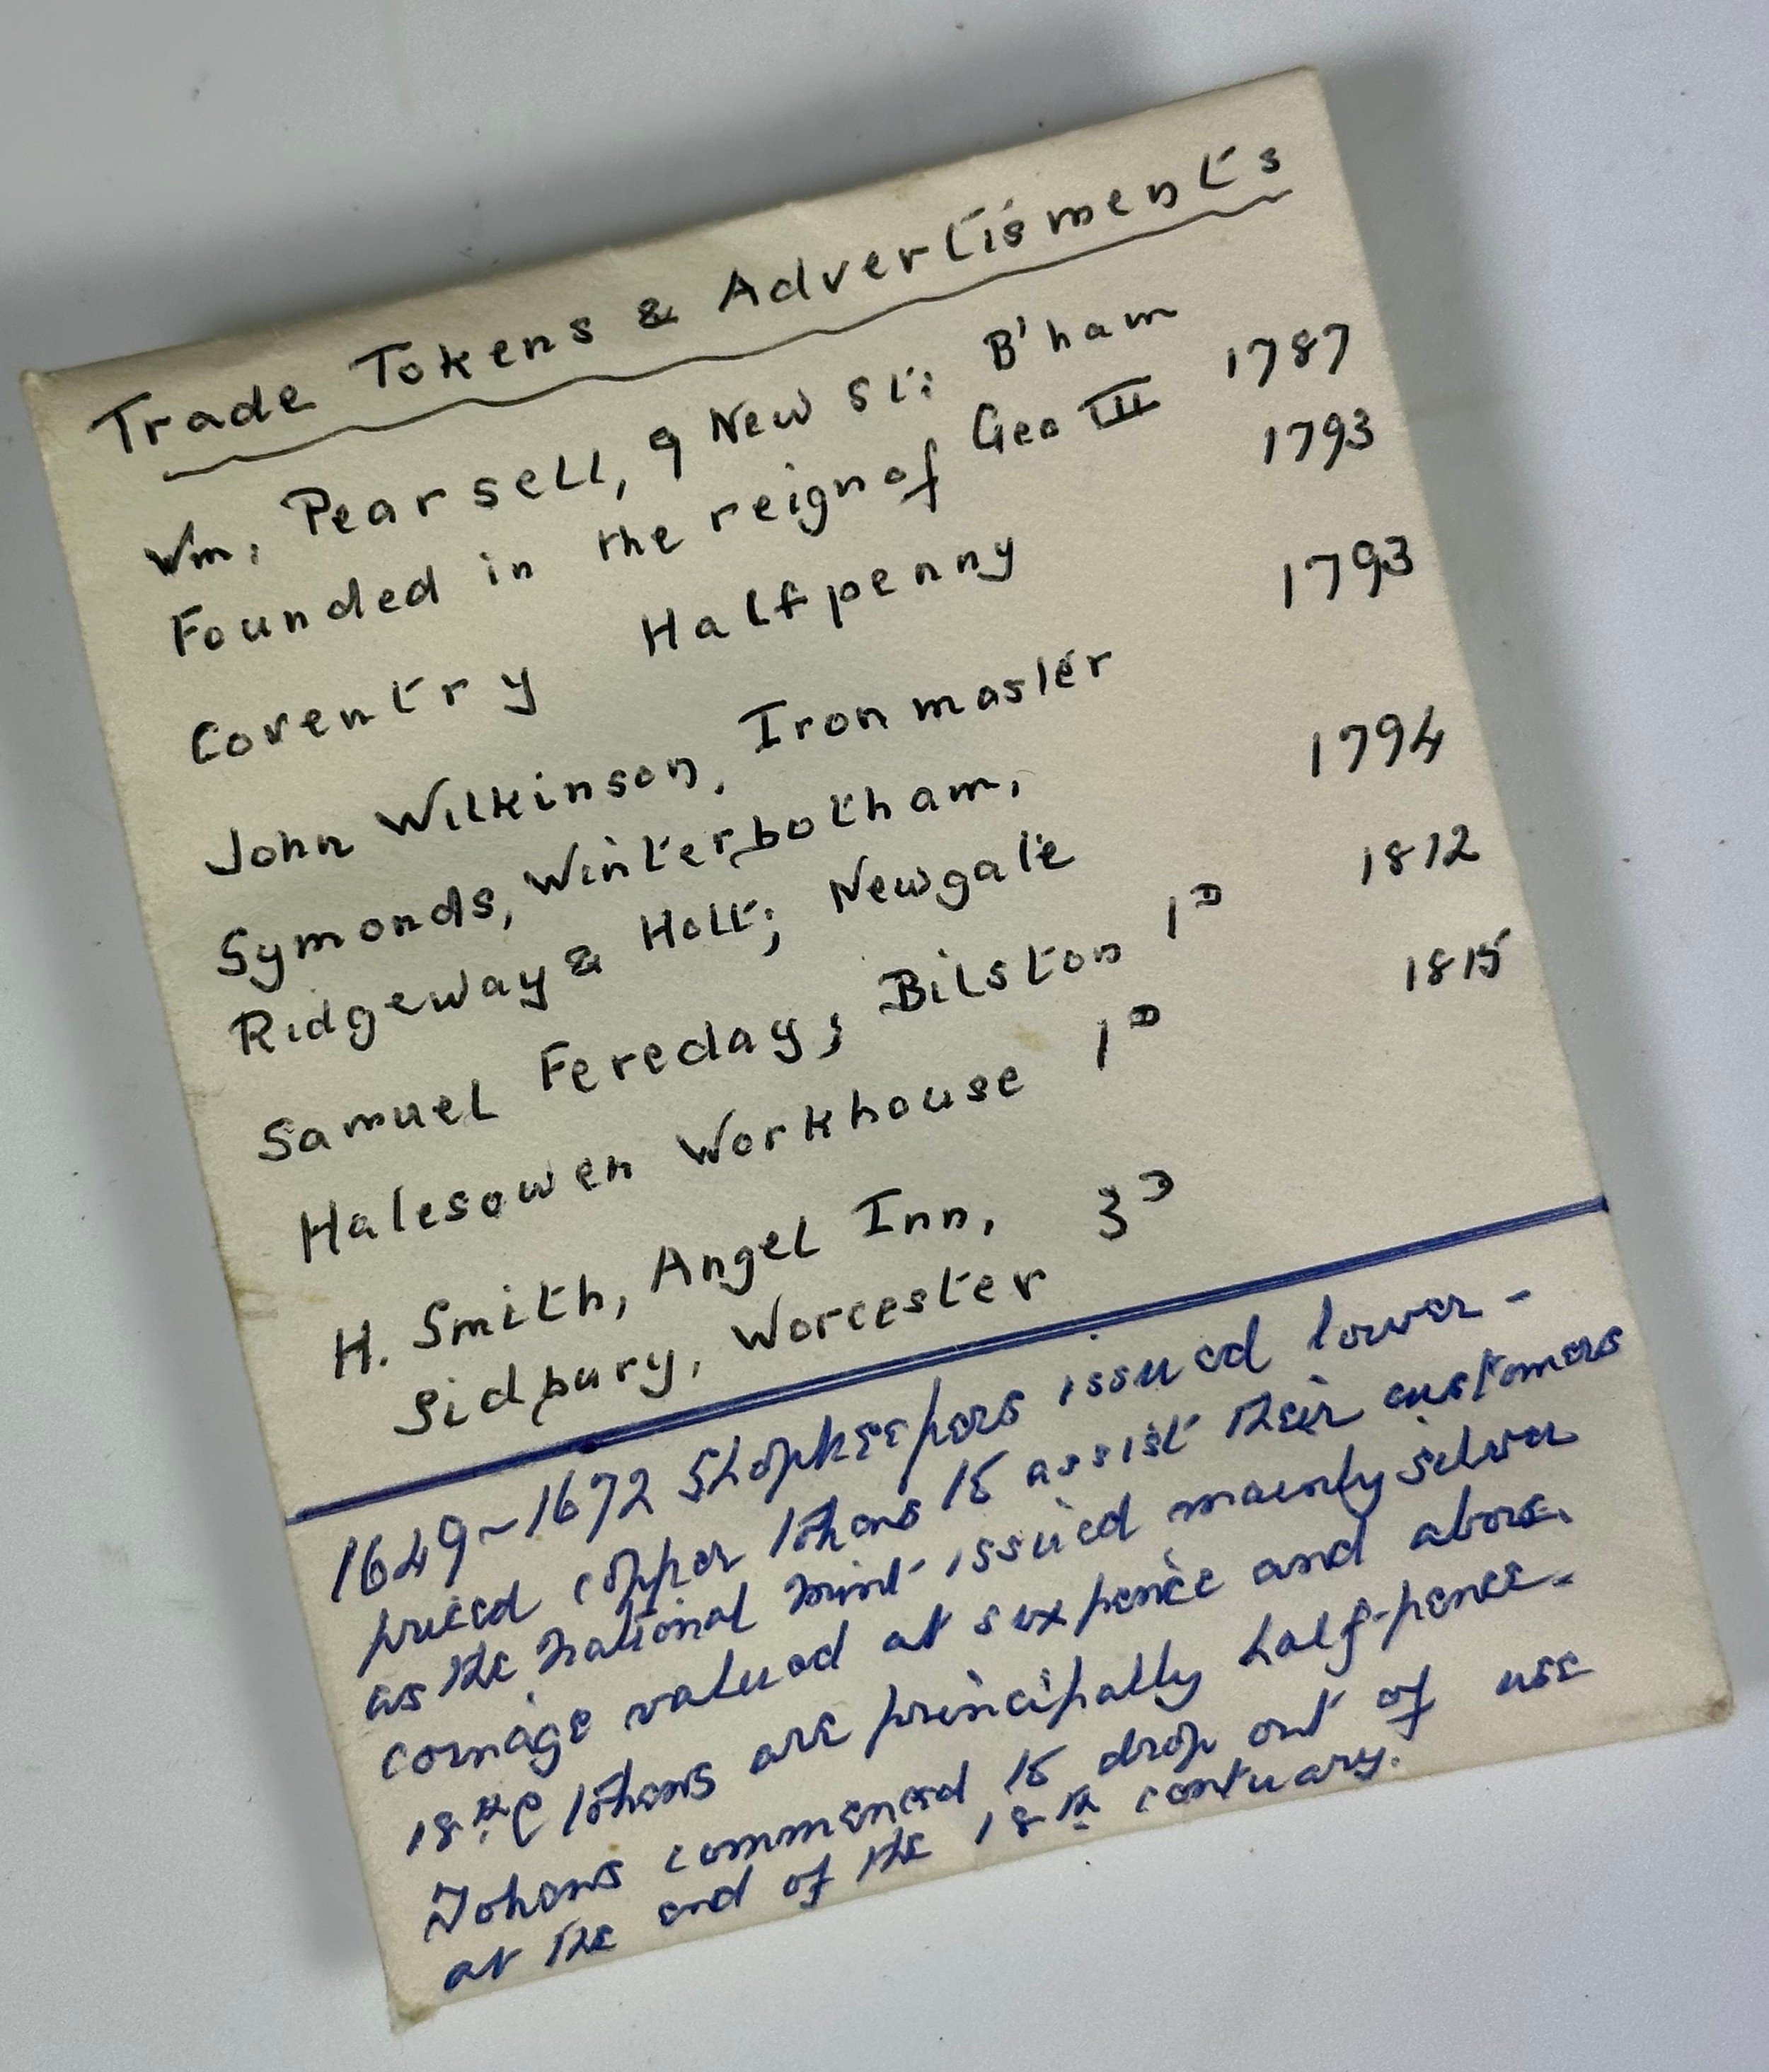 Trade Tokens & Advertisments
Wm, Pearsell, 9 New St: B'ham
Founded in the reign of Geo III 1787
Coventry Halfpenny 1793
John Wilkinson, Iron master 1793
Symonds, Winterbotham,
Ridgeway & Holt; Newgate 1794
Samuel Fereday; Bilston 1D 1812
Halesowen Workhouse 1D 1815
H. Smith, Angel Inn, 3D
Sidbury, Worcester
1649~1672 Shopkeepers issued lower-
priced copper tokens to assist their customers
as the national mint issued mainly silver
coinage valued at sixpence and above.
18th C tokens are principally half-pence.
Tokens commenced to drop out of use
at the end of the 18th centuary.